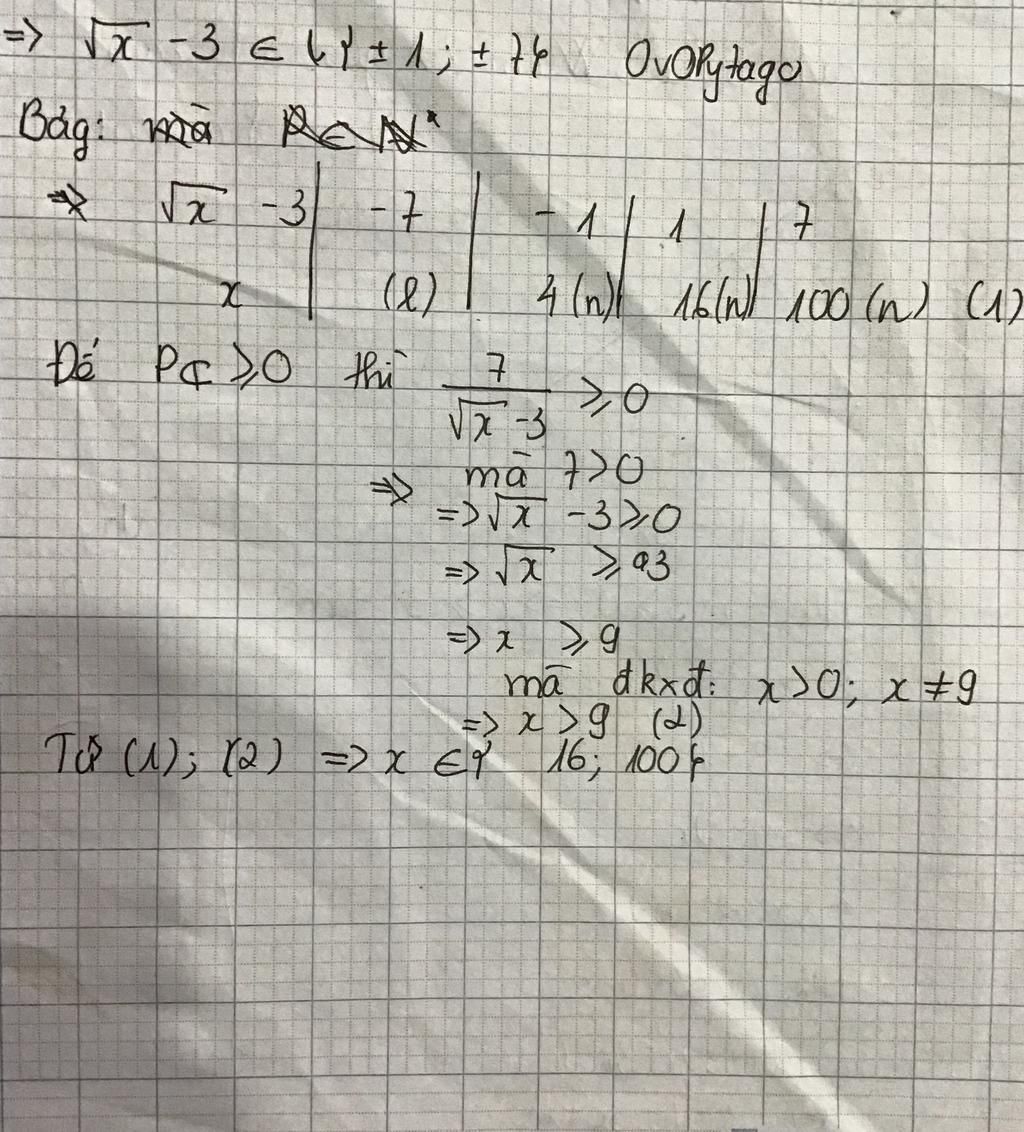 => √x - 3 ∈ { ± 1 ; ± 7 } OvOPytago
Bảg: mà P ∈ N*
=> √x - 3 | - 7 | - 1 | 1 | 7
x | (l) | 4 (n) | 16 (n) | 100 (n) (1)
Để P ⩾ 0 thì 7 / (√x - 3) ⩾ 0
=> mà 7 > 0
=> √x - 3 ⩾ 0
=> √x ⩾ 3
=> x ⩾ 9
mà đkxđ: x > 0; x ≠ 9
=> x > 9 (2)
Từ (1); (2) => x ∈ { 16; 100 }